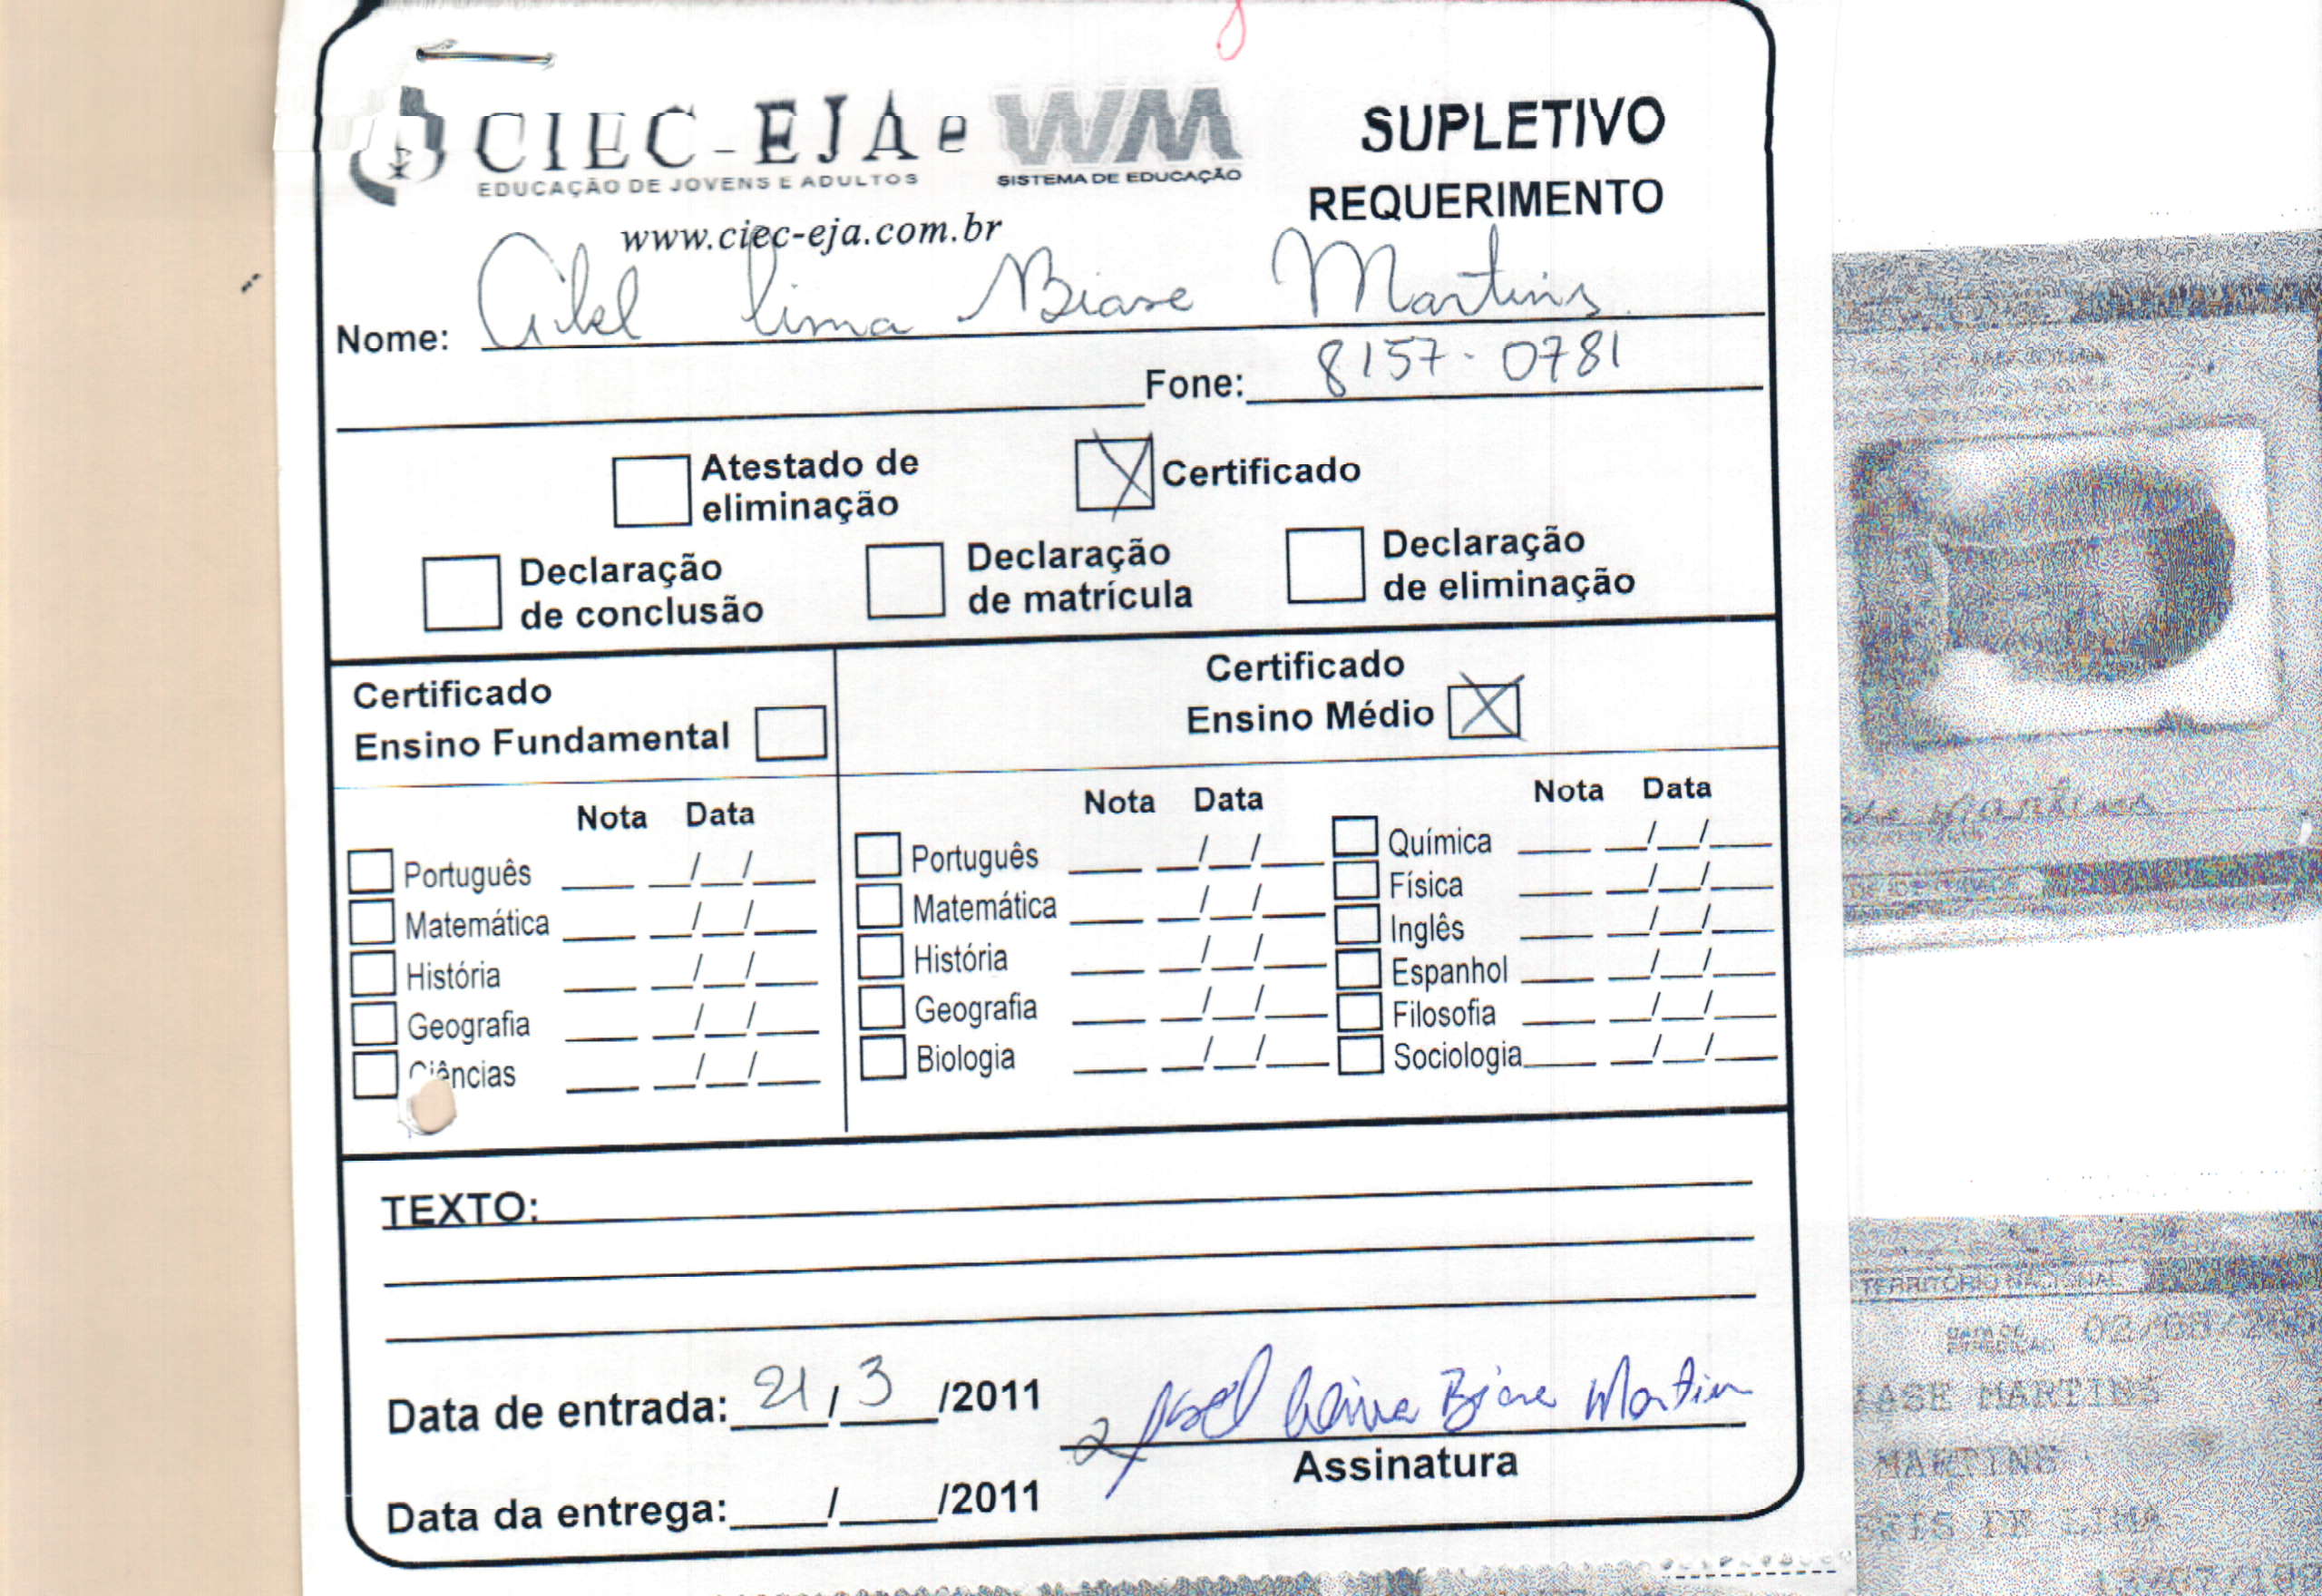 CIEC-EJA e WM
EDUCAÇÃO DE JOVENS E ADULTOS
SISTEMA DE EDUCAÇÃO
www.ciec-eja.com.br
SUPLETIVO
REQUERIMENTO
Nome: Abel lima Biase Martins
Fone: 8157-0781
Atestado de eliminação
Certificado
Declaração de conclusão
Declaração de matrícula
Declaração de eliminação
Certificado
Ensino Fundamental
Certificado
Ensino Médio
Nota Data
Português
Matemática
História
Geografia
Ciências
Nota Data
Português
Matemática
História
Geografia
Biologia
Nota Data
Química
Física
Inglês
Espanhol
Filosofia
Sociologia
TEXTO:
Data de entrada: 21/3/2011
Abel Lima Biase Martins
Assinatura
Data da entrega: / /2011
TERRITÓRIO NACIONAL
MARTINS
MARTINS
DE LIMA